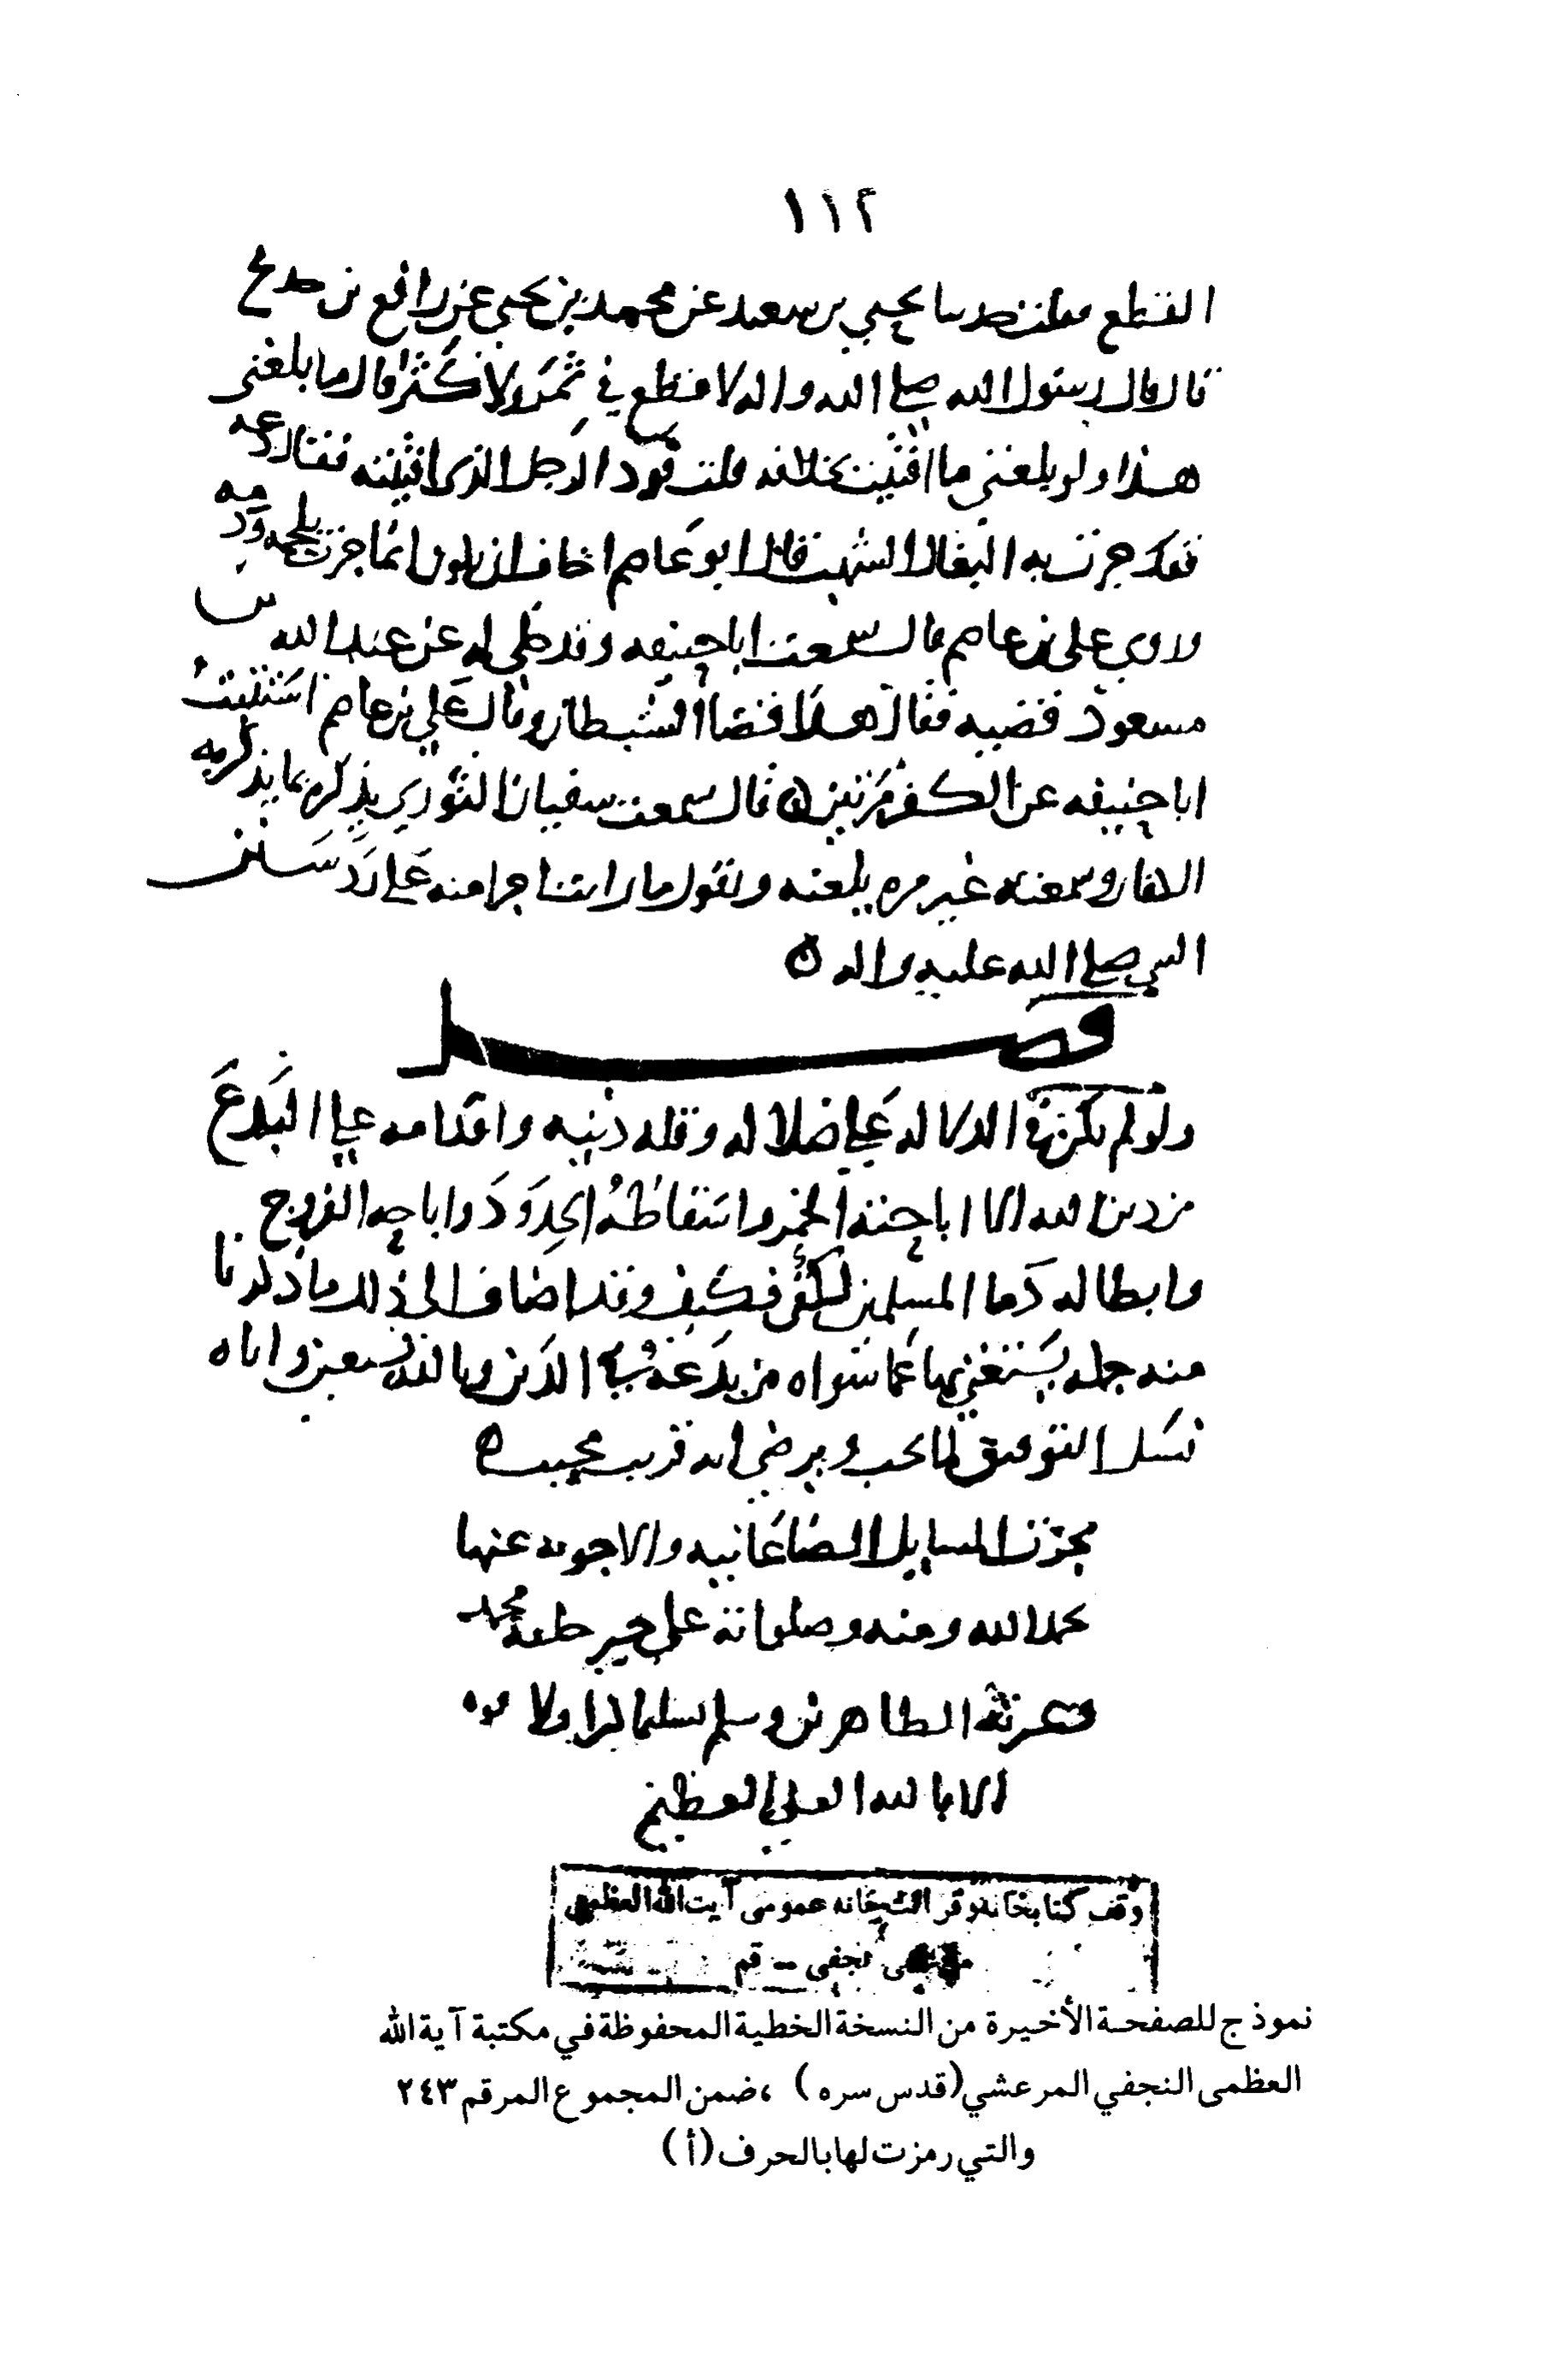 ١١٢
القطع فقلت حدثنا يحيى بن سعيد عن محمد بن يحيى عن رافع بن خديج
قال قال رسول الله صلى الله واله لا قطع في ثمر ولا كثر قال ما بلغنى
هذا ولو بلغنى ما افتيت بخلافه قلت فرد الرجل الذى افتيته فقال دعه
فقد جرت به البغال الشهب قال ابو عاصم اخاف ان يكون انما جرت بلحمه ودمه
وروى على بن عاصم قال سمعت ابا حنيفه وقد حكى له عن عبد الله بن
مسعود قضيه فقال هذا قضا الشيطان وقال علي بن عاصم استتيبت
ابا حنيفه عن الكفر مرتين قال سمعت سفيان الثوري يذكره بما يذكر به
الكفار وسمعته غير مره يلعنه ويقول ما راينا اجرا منه على رد سنن
النبي صلى الله عليه واله
فصل
ولو لم يكن في الدلاله على ضلاله وقله دينه واقدامه على البدع
من دين الله الا اباحته الخمر واسقاطه الحدود واباحه الفروج
وابطاله دما المسلمين لكفى فكيف وقد اضاف الى ذلك ما ذكرنا
منه جمله يستغنى بها عما سواه من بدعه في الدين وبالله نستعين واياه
نسل التوفيق لما يحب ويرضى انه قريب مجيب
نجزت المسايل الصاغانيه والاجوبه عنها
بحمد الله ومنه وصلواته على خير خلقه محمد
وعترته الطاهرين وسلم تسليما كثيرا ولا قوه
الا بالله العلي العظيم
وقف كتابخانه وقرائتخانه عمومى آيت الله العظمى
مرعشى نجفى -- قم
نموذج للصفحة الأخيرة من النسخة الخطية المحفوظة في مكتبة آية الله
العظمى النجفي المرعشي (قدس سره) ، ضمن المجموع المرقم ٢٤٣
والتي رمزت لها بالحرف (أ)